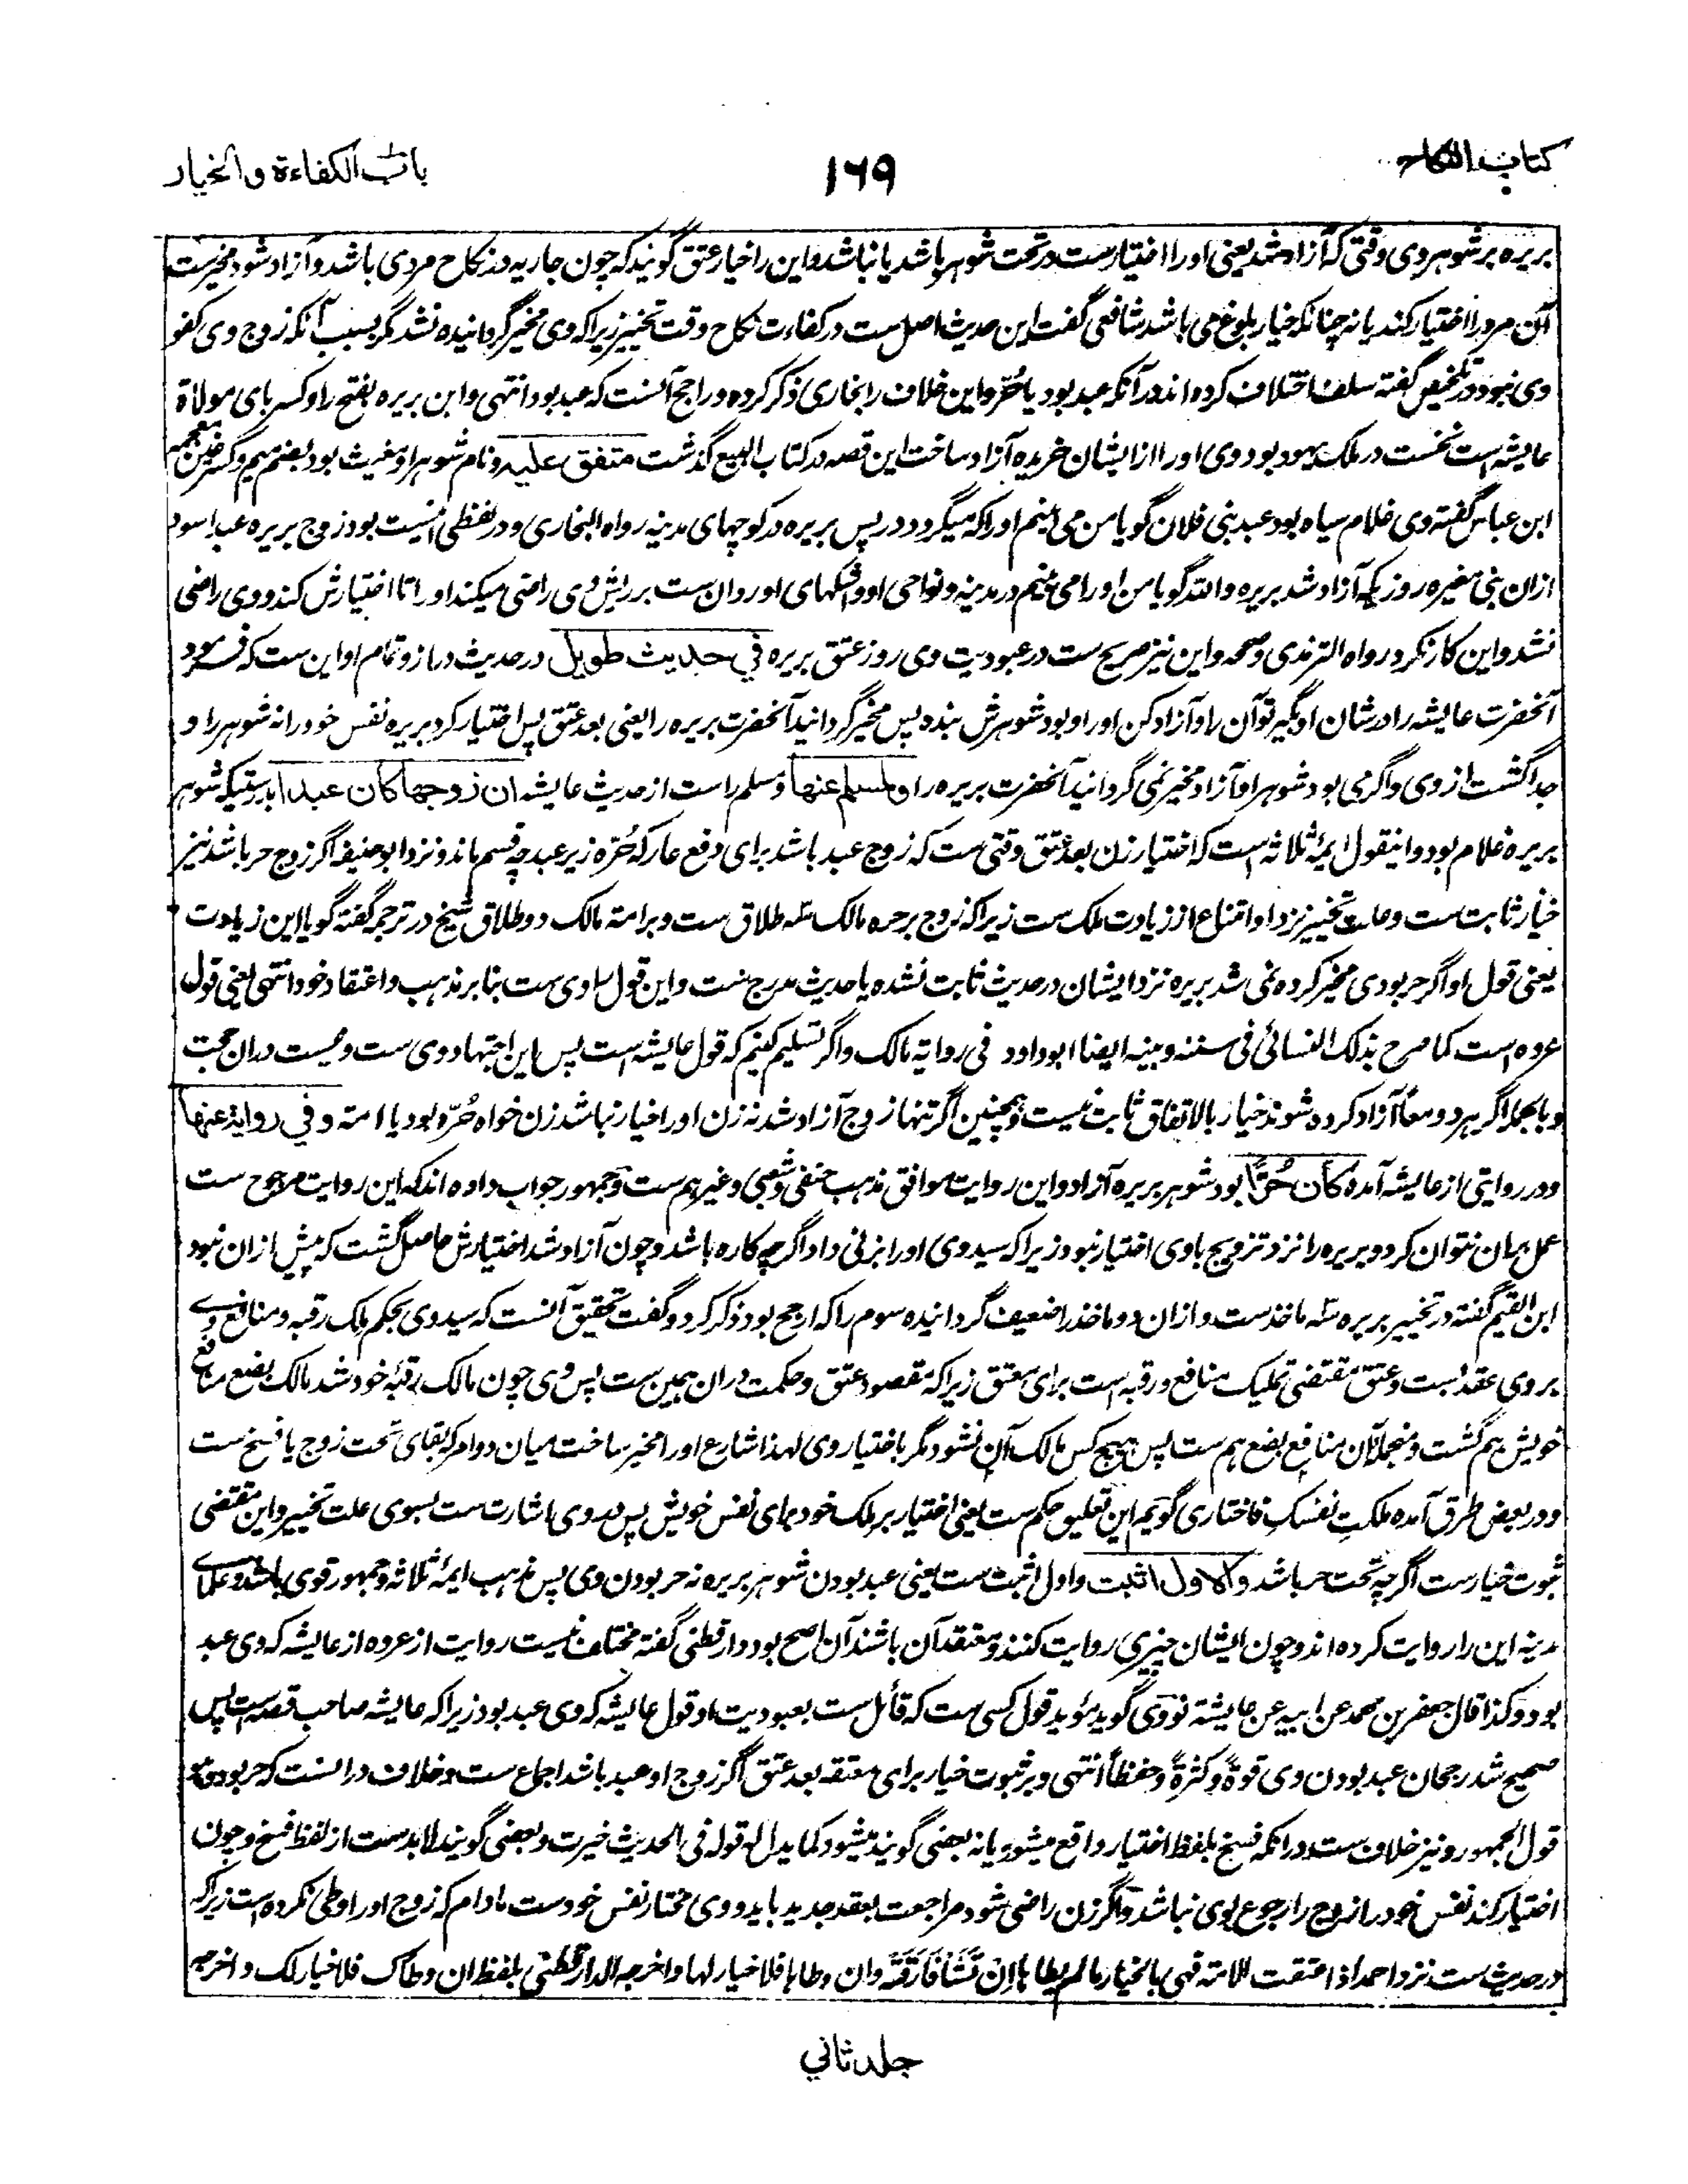 کتاب النکاح
۱۶۹
باب الکفاءة والخیار
بریره بر شوهر وی وقتی که آزاد شد یعنی او را اختیارست در تحت شوهر باشد یا نباشد و این را خیار عتق گویند که چون جاریه در نکاح مردی باشد و آزاد شود مخیرست
آن مرد را اختیار کند یا نه چنانکه خیار بلوغ می باشد شافعی گفت این حدیث اصل ست در کفاءت نکاح وقت تخییر زیرا که وی مخیر گردانیده نشد مگر بسبب آنکه زوج وی کفو
وی نبود و در تلخیص گفته سلف اختلاف کرده اند در آنکه عبد بود یا حُرّ و این خلاف را بخاری ذکر کرده و راجح آنست که عبد بود انتهی و ابن بریره بفتح را و کسر بای مولاة
عایشه است نخست در ملک یهود بود وی او را از ایشان خریده آزاد ساخت این قصه در کتاب البیع گذشت متفق علیه و نام شوهر او مغیث بود بضم میم و کسر غین معجمه
ابن عباس گفته وی غلام سیاه بود عبد بنی فلان گویا من می بینم او را که میگردد در پس بریره در کوچهای مدینه رواه البخاری و در لفظی اینست بود زوج بریره عبد اسود
ازان بنی مغیره روزیکه آزاد شد بریره والله گویا من او را می بینم در مدینه و نواحی او و اشکهای او روان ست بر ریش وی راضی میکند او را تا اختیارش کند و وی راضی
نشد و این کار نکرد رواه الترمذی وصححه و این نیز صریح ست در عبودیت وی روز عتق بریره في حدیث طویل در حدیث دراز و تمام او این ست که فرمود
آنحضرت عایشه را در شان او بگیر تو آن را و آزاد کن او را و بود شوهرش بنده پس مخیر گردانید آنحضرت بریره را یعنی بعد عتق پس اختیار کرد بریره نفس خود را نه شوهر را و
جدا گشت از وی و اگر می بود شوهر او آزاد مخیر نمی گردانید آنحضرت بریره را ولمسلم عنها و مسلم راست از حدیث عایشه ان زوجها کان عبدا بدرستیکه شوهر
بریره غلام بود و اینقول ایمۀ ثلاثه است که اختیار زن بعد عتق وقتی ست که زوج عبد باشد برای دفع عار که حُرّه زیر عبد چه قسم ماند و نزد ابو حنیفه اگر زوج حر باشد نیز
خیار ثابت ست و علت تخییر نزد او امتناع از زیادت ملک ست زیرا که زوج بر حره مالک سه طلاق ست و بر امته مالک دو طلاق شیخ در ترجمه گفته گویا این زیادت
یعنی قول او اگر حر بودی مخیر کرده نمی شد بریره نزد ایشان در حدیث ثابت نشده یا حدیث مدرج ست و این قول راوی ست بنابر مذهب و اعتقاد خود انتهی یعنی قول
عروه است کما صرح بذلک النسائی فی سننه وبینه ایضا ابوداود فی روایة مالک و اگر تسلیم کنیم که قول عایشه است پس این اجتهاد وی ست و نیست دران حجت
و بالجمله اگر هر دو معًا آزاد کرده شوند خیار بالاتفاق ثابت نیست و همچنین اگر تنها زوج آزاد شد نه زن او را خیار نباشد زن خواه حُرّه بود یا امته وفي روایة عنها
و در روایتی از عایشه آمده کان حُرًّا بود شوهر بریره آزاد و این روایت موافق مذهب حنفی و شعبی و غیرهم ست و جمهور جواب داده اند که این روایت مرجوح ست
عمل بدان نتوان کرد و بریره را نزد تزویج با وی اختیار نبود زیرا که سید وی او را بزنی داد اگرچه کاره باشد و چون آزاد شد اختیارش حاصل گشت که پیش ازان نبود
ابن القیم گفته در تخییر بریره سه ماخذست و ازان دو ماخذ را ضعیف گردانیده سوم را که ارجح بود ذکر کرد و گفت تحقیق آنست که سید وی بحکم ملک رقبه و منافع وی
بر وی عقد بست و عتق مقتضی تملیک منافع و رقبه است برای معتق زیرا که مقصود عتق و حکمت دران همین ست پس وی چون مالک رقبۀ خود شد مالک بضع منافع
خویش هم گشت و منجملۀ آن منافع بضع هم ست پس هیچ کس مالک آن نشود مگر باختیار وی لهذا شارع او را مخیر ساخت میان دوام که بقای تحت زوج یا فسخ ست
و در بعض طرق آمده ملکتِ نفسکِ فاختاری گویم این تعلیق حکم ست یعنی اختیار بر ملک خود برای نفس خویش پس در وی اشارت ست بسوی علت تخییر و این مقتضی
ثبوت خیارست اگرچه تحت حر باشد والاول اثبت و اول اثبت ست یعنی عبد بودن شوهر بریره نه حر بودن وی پس مذهب ایمۀ ثلاثه و جمهور قوی باشد و علمای
مدینه این را روایت کرده اند و چون ایشان چیزی روایت کنند و معتقد آن باشند آن اصح بود دارقطنی گفته مختلف نیست روایت از عروه از عایشه که وی عبد
بود وکذا قال جعفر بن محمد عن ابیه عن عایشة نووی گوید مؤید قول کسی ست که قائل ست بعبودیت او قول عایشه که وی عبد بود زیرا که عایشه صاحب قصه است پس
صحیح شد رجحان عبد بودن وی قوةً وکثرةً وحفظاً انتهی و بر ثبوت خیار برای معتقه بعد عتق اگر زوج او عبد باشد اجماع ست و خلاف درانست که حر بود
قول الجمهور و نیز خلاف ست در آنکه فسخ بلفظ اختیار واقع میشود یا نه بعضی گویند میشود کما یدل له قوله فی الحدیث خیرت و بعضی گویند لابدست از لفظ فسخ و چون
اختیار کند نفس خود را زوج را رجوع بوی نباشد و اگر زن راضی شود مراجعت بعقد جدید باید و وی مختار نفس خودست مادام که زوج او را وطی نکرده است زیرا که
در حدیث ست نزد احمد اذا عتقت الامة فهی بالخیار ما لم یطاها اِن تَشَأ فَارَقَتْه وان وطاها فلا خیار لها واخرجه الدارقطنی بلفظ ان وطاک فلا خیار لک واخرجه
جلد ثاني